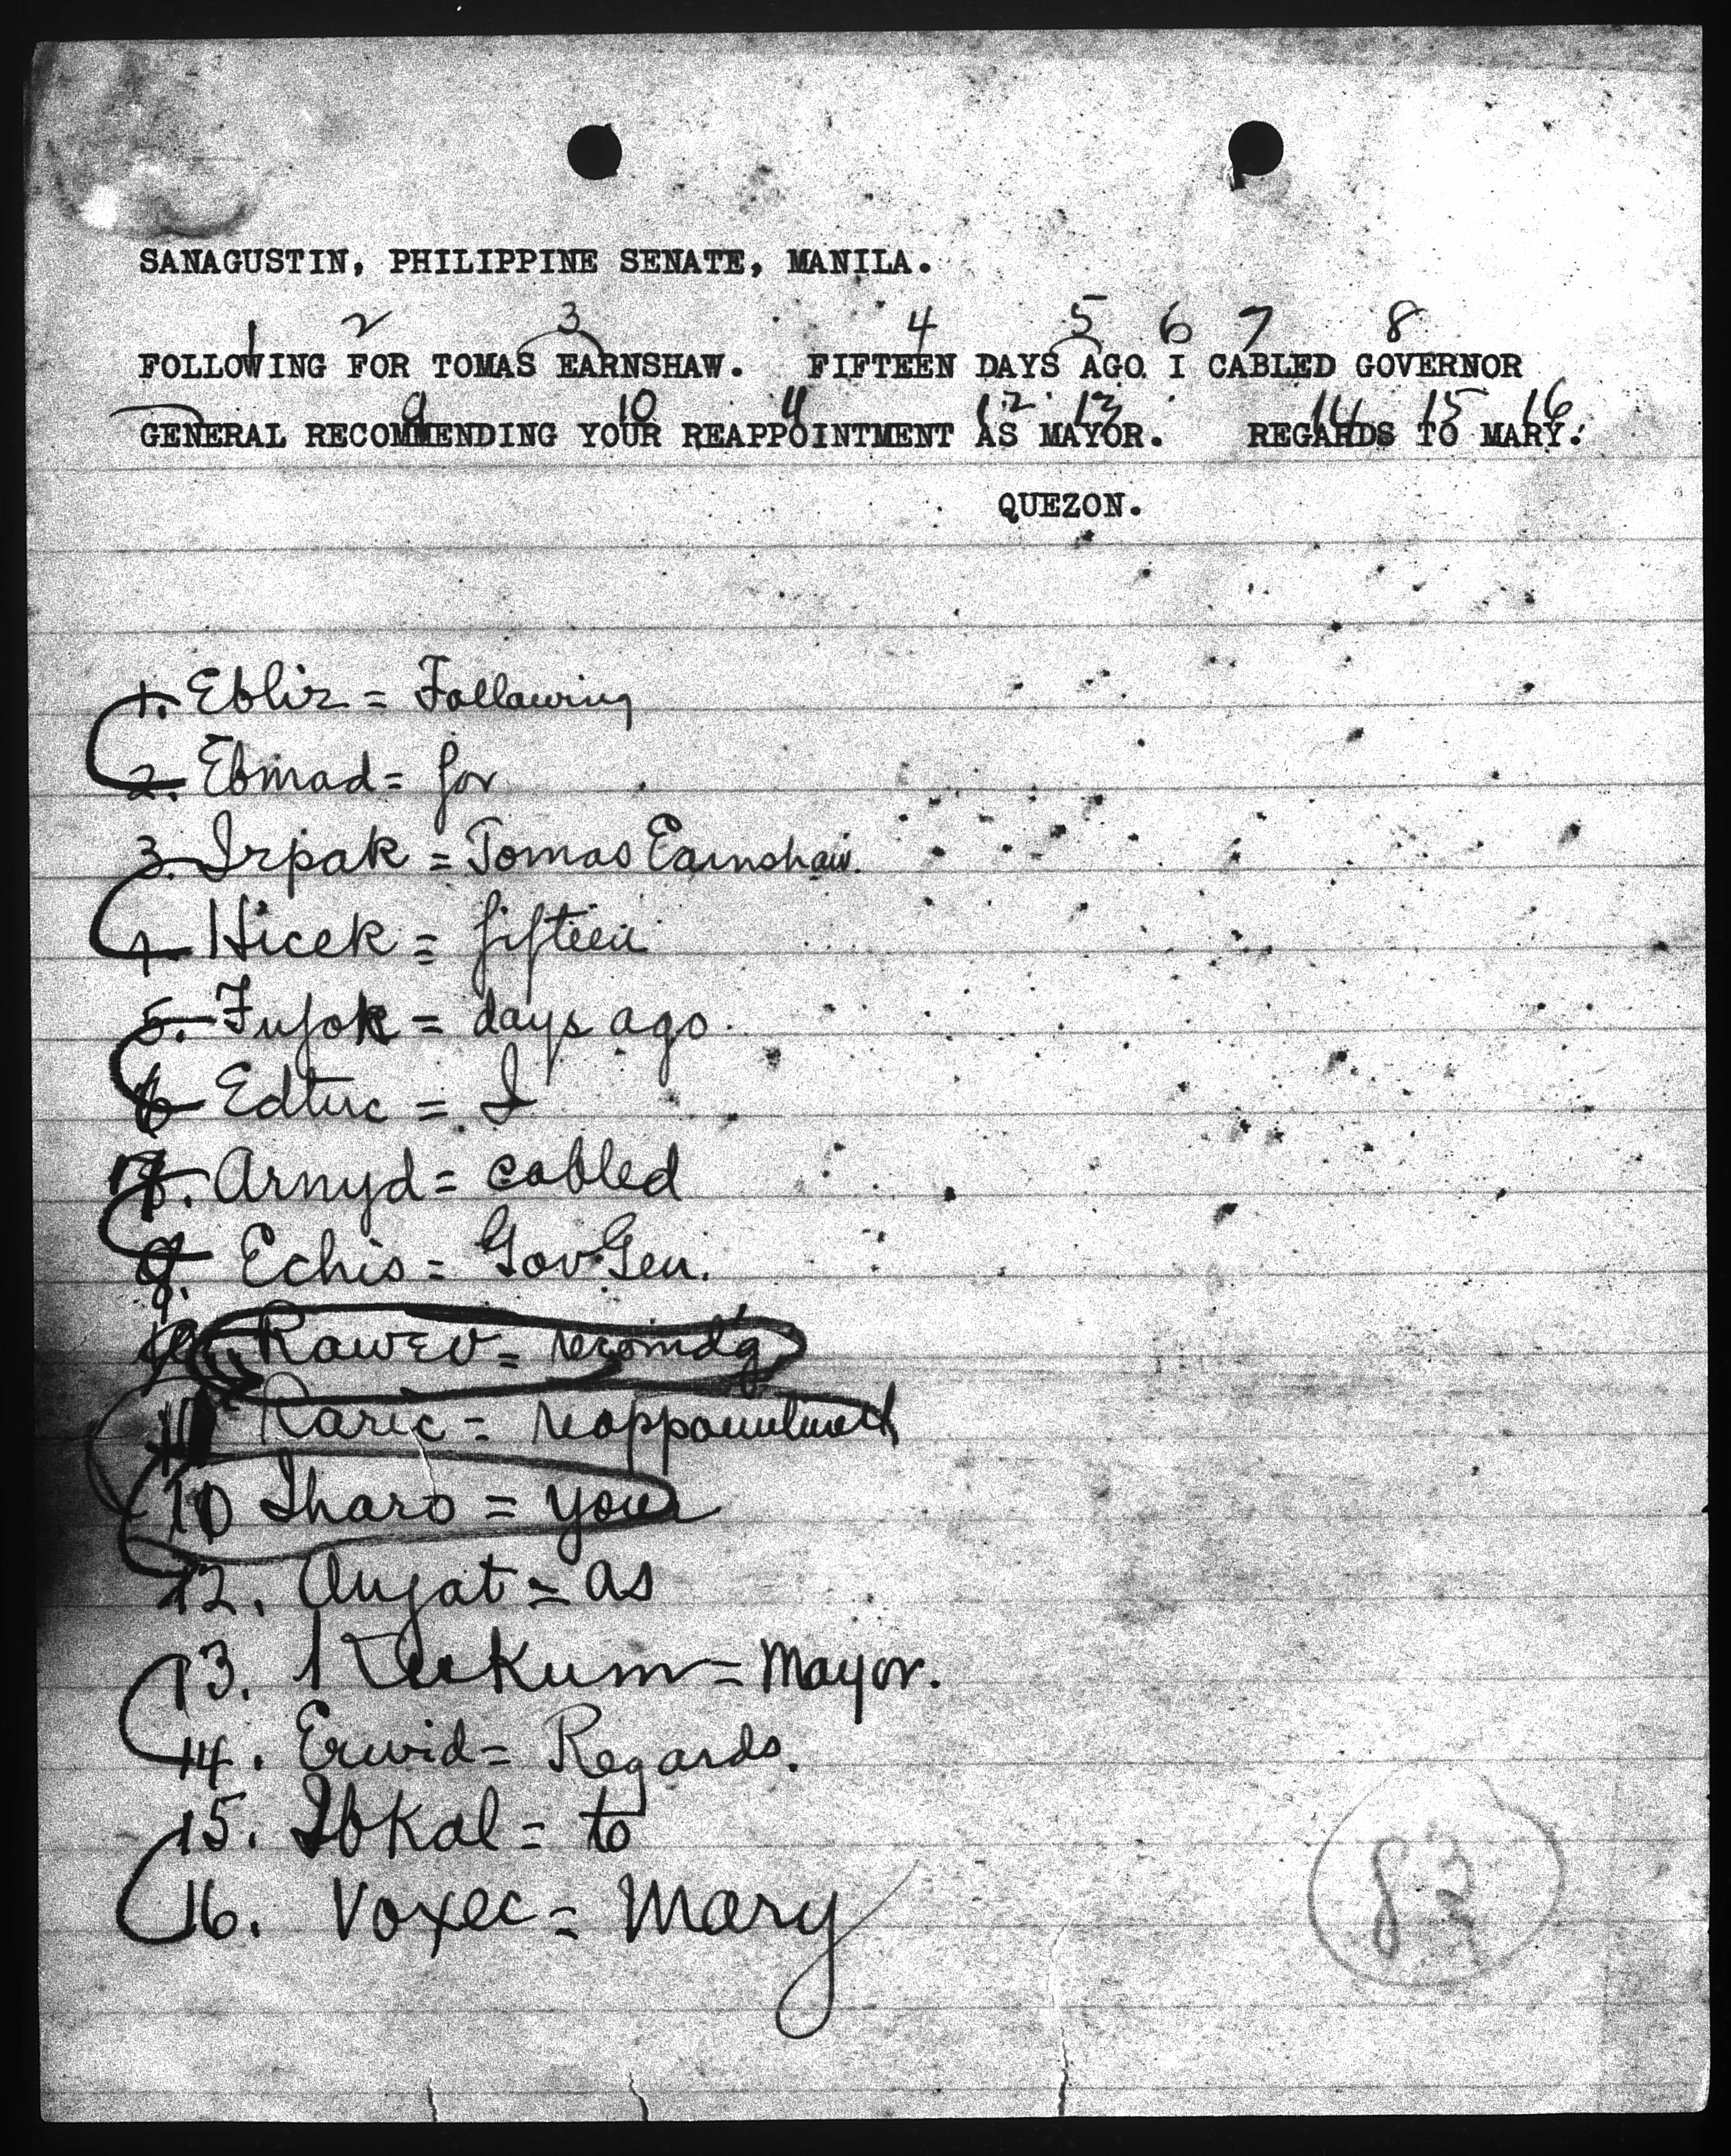 SANAGUSTIN, PHILIPPINE SENATE, MANILA.
1 2 3 4 5 6 7 8
FOLLOWING FOR TOMAS EARNSHAW. FIFTEEN DAYS AGO I CABLED GOVERNOR
9 10 11 12 13 14 15 16
GENERAL RECOMMENDING YOUR REAPPOINTMENT AS MAYOR. REGARDS TO MARY.
QUEZON.
1. Ebliz = Following
2. Ebmad = for
3. Irpak = Tomas Earnshaw.
4. Hicek = fifteen
5. Fujok = days ago.
6 Edtuc = I
Arnyd = cabled
Echis = Gov Gen.
Rawev = recomd'g
11 Raric = reappointment
10 Iharo = your
12. = as
13. = Mayor.
14. Eruvid = Regards.
15. Ibkal = to
16. Voxec = Mary
83